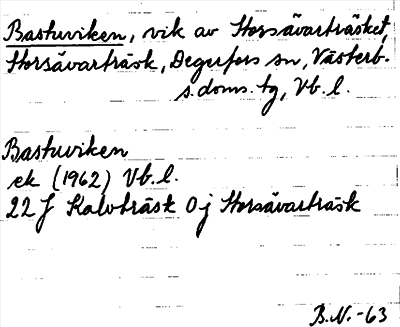 Bastuviken, vik av Storsävarträsket,
Storsävarträsk, Degerfors sn, Västerb.
s. doms. tg, Vb. l.
Bastuviken
ek (1962) Vb. l.
22 J Kalvträsk 0 j Storsävarträsk
B.N. -63